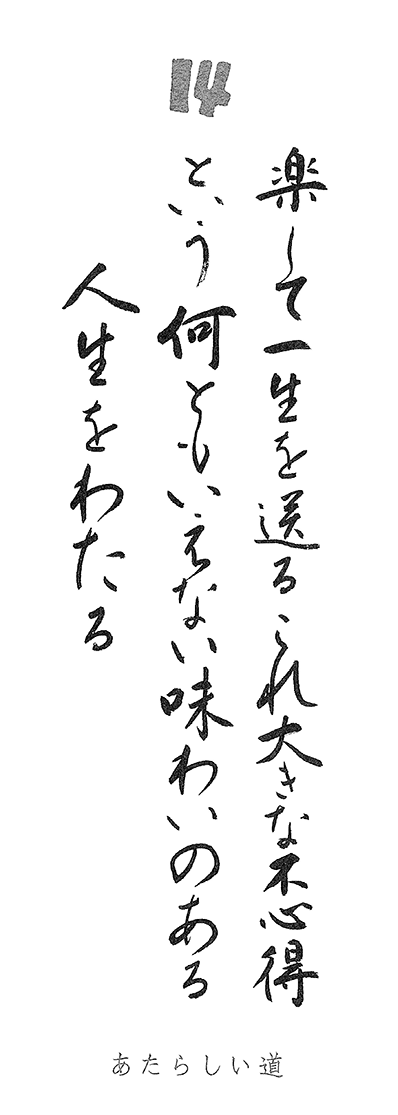 14
楽して一生を送るこれ大きな不心得
という何ともいえない味わいのある
人生をわたる
あたらしい道